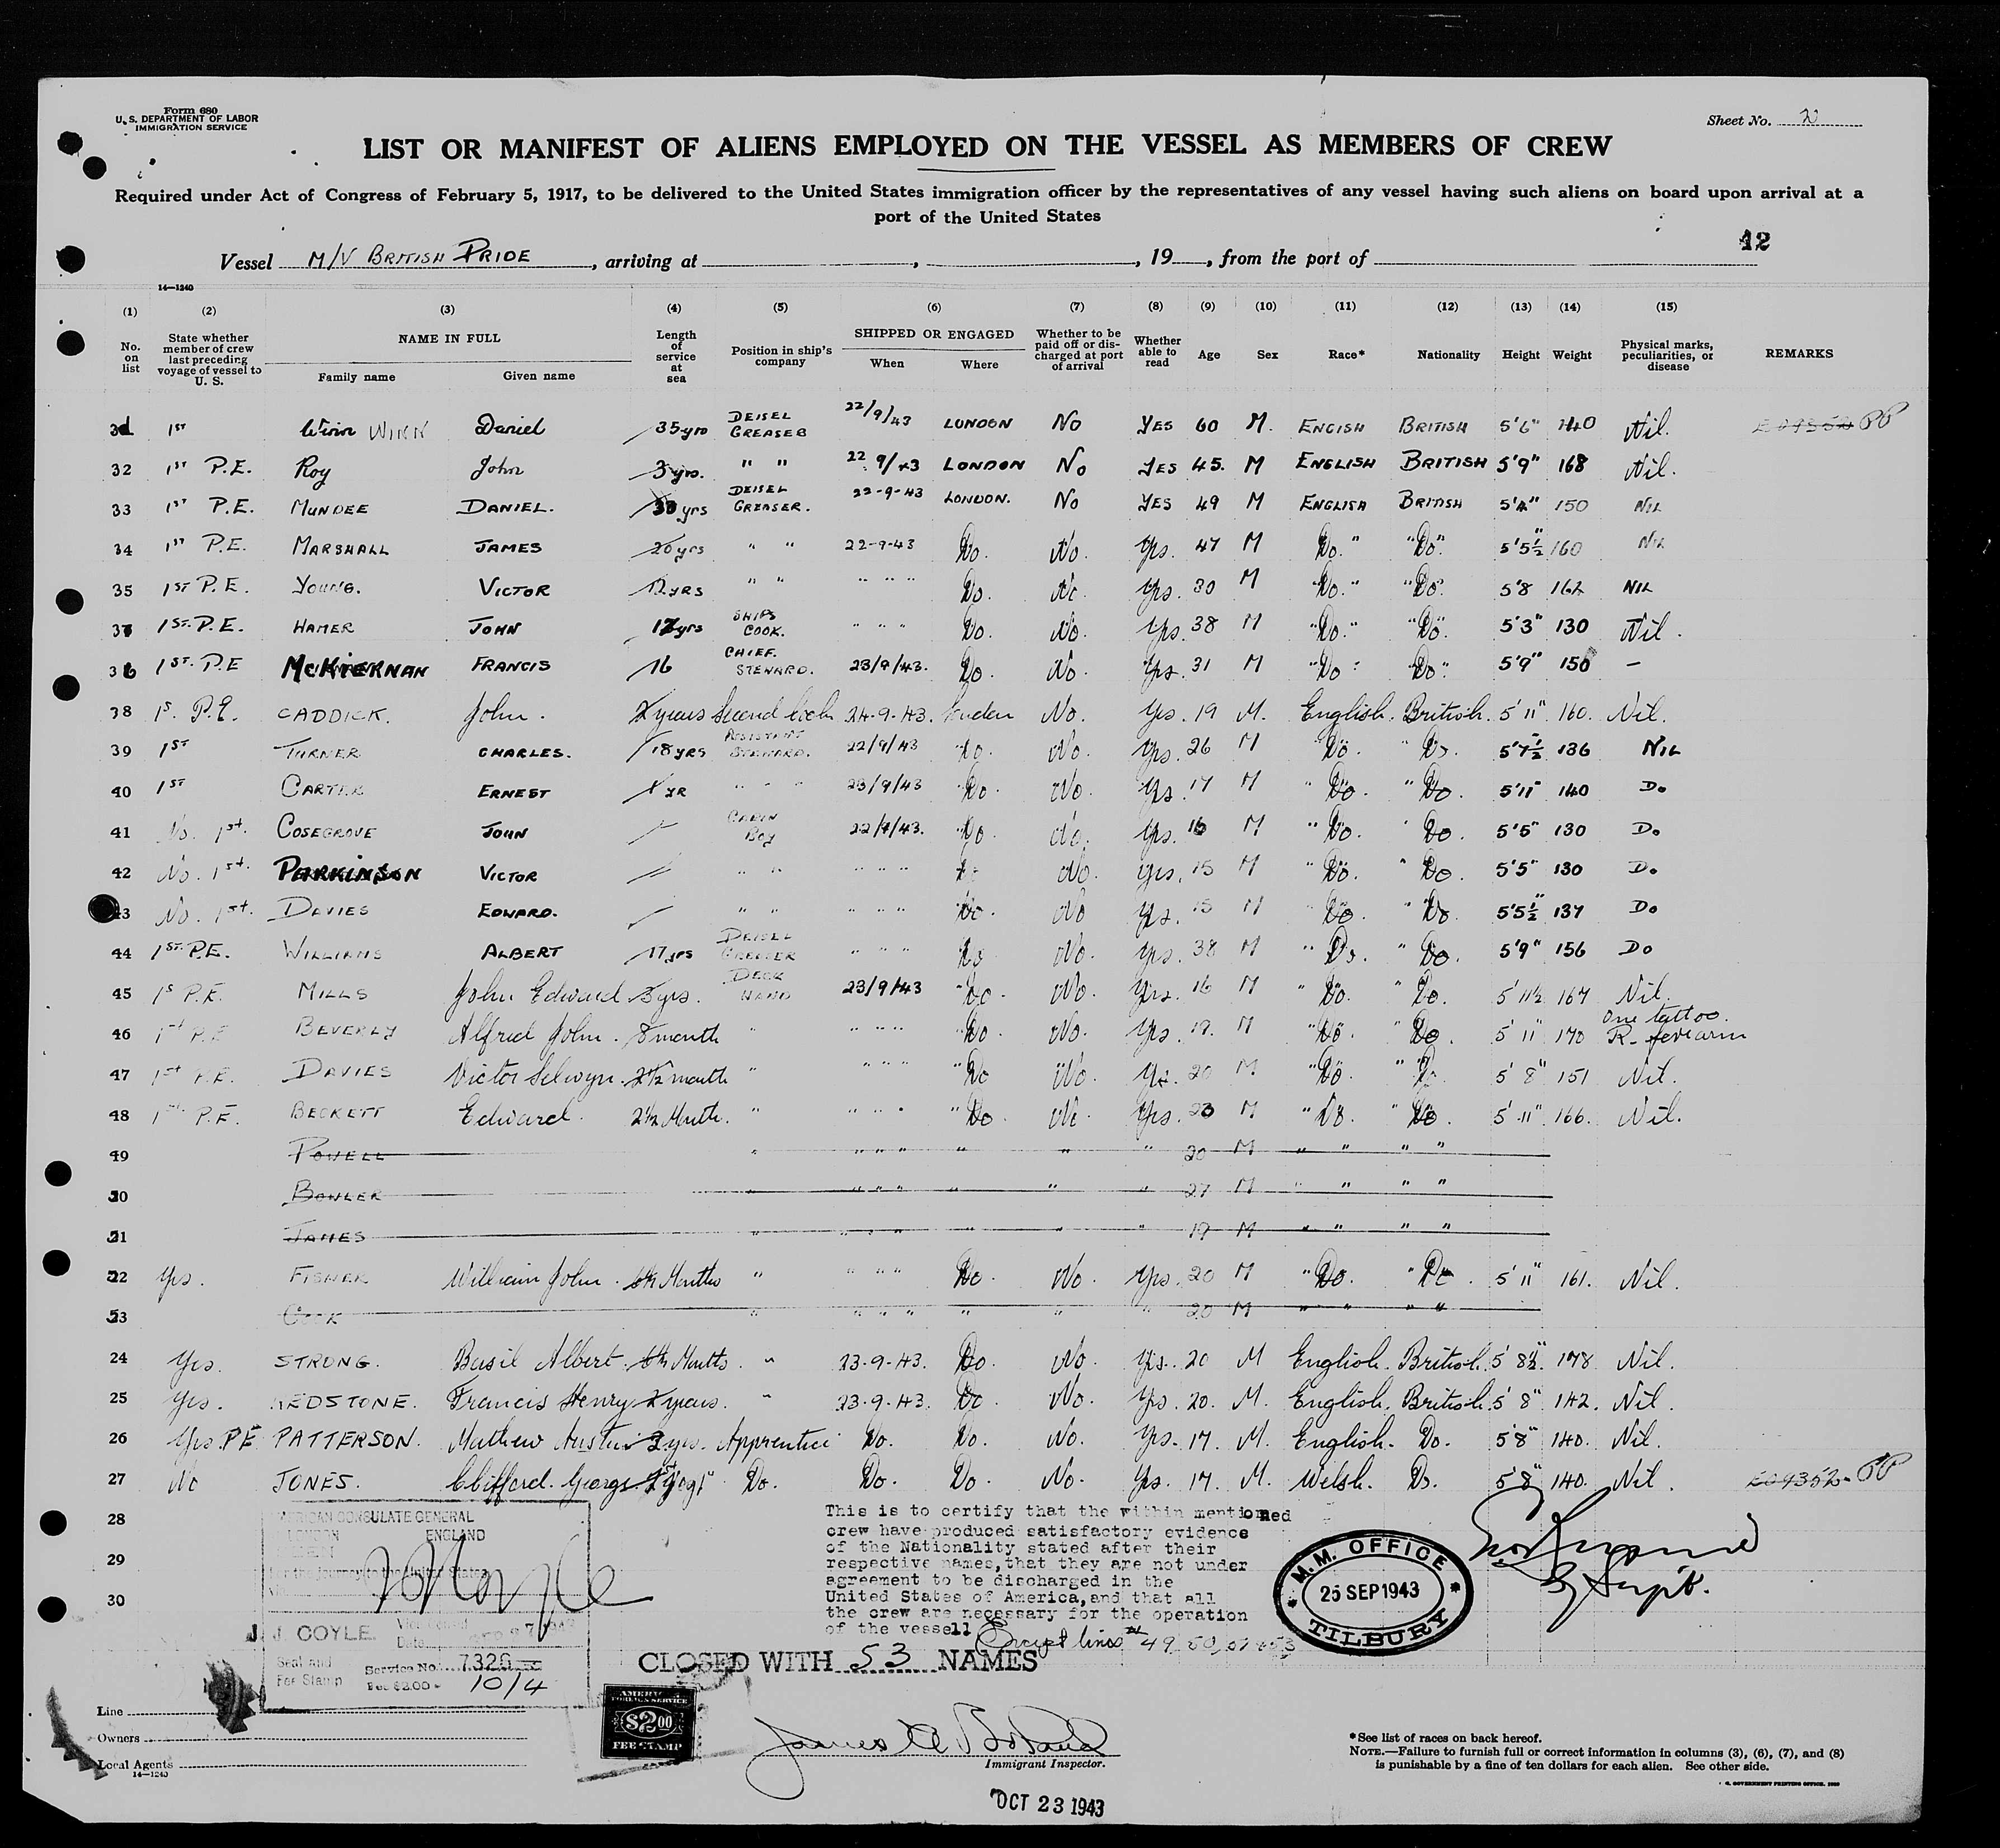 Form 680
U. S. DEPARTMENT OF LABOR
IMMIGRATION SERVICE
Sheet No. 2
LIST OR MANIFEST OF ALIENS EMPLOYED ON THE VESSEL AS MEMBERS OF CREW
Required under Act of Congress of February 5, 1917, to be delivered to the United States immigration officer by the representatives of any vessel having such aliens on board upon arrival at a
port of the United States
12
Vessel M/V BRITISH PRIDE, arriving at , , 19 , from the port of
14—1240
(1) (2) (3) (4) (5) (6) (7) (8) (9) (10) (11) (12) (13) (14) (15)
No. on list State whether member of crew last preceding voyage of vessel to U. S. NAME IN FULL Family name Given name Length of service at sea Position in ship's company SHIPPED OR ENGAGED When Where Whether to be paid off or discharged at port of arrival Whether able to read Age Sex Race* Nationality Height Weight Physical marks, peculiarities, or disease REMARKS
1ST Winn WINN Daniel 35 yrs DEISEL GREASER 22/9/43 LONDON No YES 60 M. ENGISH BRITISH 5'6" 140 Nil. PP
32 1ST P.E. Roy John 3 yrs. " " 22 9/43 LONDON No YES 45. M ENGLISH BRITISH 5'9" 168 Nil.
33 1ST P.E. MUNDEE DANIEL. 30 yrs DEISEL GREASER. 22-9-43 LONDON. No YES 49 M ENGLISH BRITISH 5'4" 150 NIL
34 1ST P.E. MARSHALL JAMES 20 yrs " " 22-9-43 Do. No. Yes. 47 M Do. " "Do" 5'5½" 160 NIL
35 1ST P.E. YOUNG. VICTOR YRS " " " " " Do. No. Yes. 30 M "Do." "Do." 5'8 162 NIL
37 1ST. P.E. HAMER JOHN yrs SHIPS COOK. " " " Do. No. Yes. 38 M "Do." "Do. 5'3" 130 Nil.
36 1ST. P.E McKIERNAN FRANCIS 16 CHIEF. STEWARD. 23/9/43. Do. No. Yes. 31 M "Do " "Do" 5'9" 150 —
38 1s. P.E. CADDICK. John. 2 years Second Cook 24-9-43. London No. Yes. 19 M. English. British. 5'11" 160. Nil.
39 1ST TURNER CHARLES. 18 YRS ASSISTANT STEWARD. 22/9/43 Do. No. Yes. 26 M "Do. "Do. 5'7½ 136 NIL
40 1ST CARTER ERNEST 1 YR " " 23/9/43 Do. No. Yes. 17 M "Do. "Do. 5'11" 140 Do
41 No. 1st. COSEGROVE JOHN CABIN Boy 22/9/43. "Do. No. Yes. 16 M "Do. Do. 5'5" 130 Do
42 No. 1st. PARKINSON VICTOR " " " " " No. Yes. 15 M "Do. "Do. 5'5" 130 Do
43 No. 1st. DAVIES EDWARD. " " " " " Do. No Yes. 15 M "Do. "Do. 5'5½" 137 Do
44 1ST. P.E. WILLIAMS ALBERT 17 yrs DEISEL GREASER " " " Do No. Yes. 38 M "Do. "Do. 5'9" 156 Do
45 1s P.E. MILLS John Edward 3 yrs. DECK HAND 23/9/43 "Do. No. Yes. 16 M "Do. "Do. 5'11½ 167 Nil.
46 1st P.E BEVERLY Alfred John. 8 month " " " " "Do. No. Yes. 19. M "Do. "Do. 5'11" 170 One tattoo. R- forearm
47 1st P.E. DAVIES Victor Selwyn. 2½ month " " " " "Do No. Yes. 20 M "Do. "Do. 5'8" 151 Nil.
48 1st P.E. BECKETT Edward. 2½ Month. " " " " "Do. No. Yes. 20 M "Do. "Do. 5'11" 166. Nil.
49 POWELL " " " " " " " 20 M " " " "
50 BOWLER " " " " " " " 27 M " " " "
51 JAMES " " " " " " " 19 M " " " "
52 Yes. FISHER William John. Months " " " " Do. No. Yes. 20 M "Do. "Do. 5'11" 161. Nil.
53 COOK " " " " " " " 20 M " " " "
24 Yes. STRONG. Basil Albert. Months. " 23-9-43. Do. No. Yes. 20 M English. British. 5'8½" 178 Nil.
25 Yes. REDSTONE. Francis Henry 2 years. " 23-9-43. Do. No. Yes. 20. M. English. British. 5'8" 142. Nil.
26 Yes P.E PATTERSON. Mathew Austin 2 yrs. Apprentice Do. Do. No. Yes. 17. M. English. Do. 5'8" 140. Nil.
27 No JONES. Clifford George Do. Do. Do. No. Yes. 17 M. Welsh. Do. 5'8" 140. Nil. E09352 PP
28
29
30
AMERICAN CONSULATE GENERAL
LONDON ENGLAND
for the journey to the United States
J. J. COYLE
Date
Seal and Fee Stamp
Service No. 7320
Fee $2.00
10/4
This is to certify that the within mentioned
crew have produced satisfactory evidence
of the Nationality stated after their
respective names, that they are not under
agreement to be discharged in the
United States of America, and that all
the crew are necessary for the operation
of the vessel
Except lines 49 50, 51 & 53
M.M. OFFICE
25 SEP 1943
TILBURY
CLOSED WITH 53 NAMES
AMERICAN
FOREIGN SERVICE
$2.00
FEE STAMP
Line
Owners
Local Agents
14—1240
Immigrant Inspector.
OCT 23 1943
*See list of races on back hereof.
NOTE.—Failure to furnish full or correct information in columns (3), (6), (7), and (8)
is punishable by a fine of ten dollars for each alien. See other side.
GOVERNMENT PRINTING OFFICE